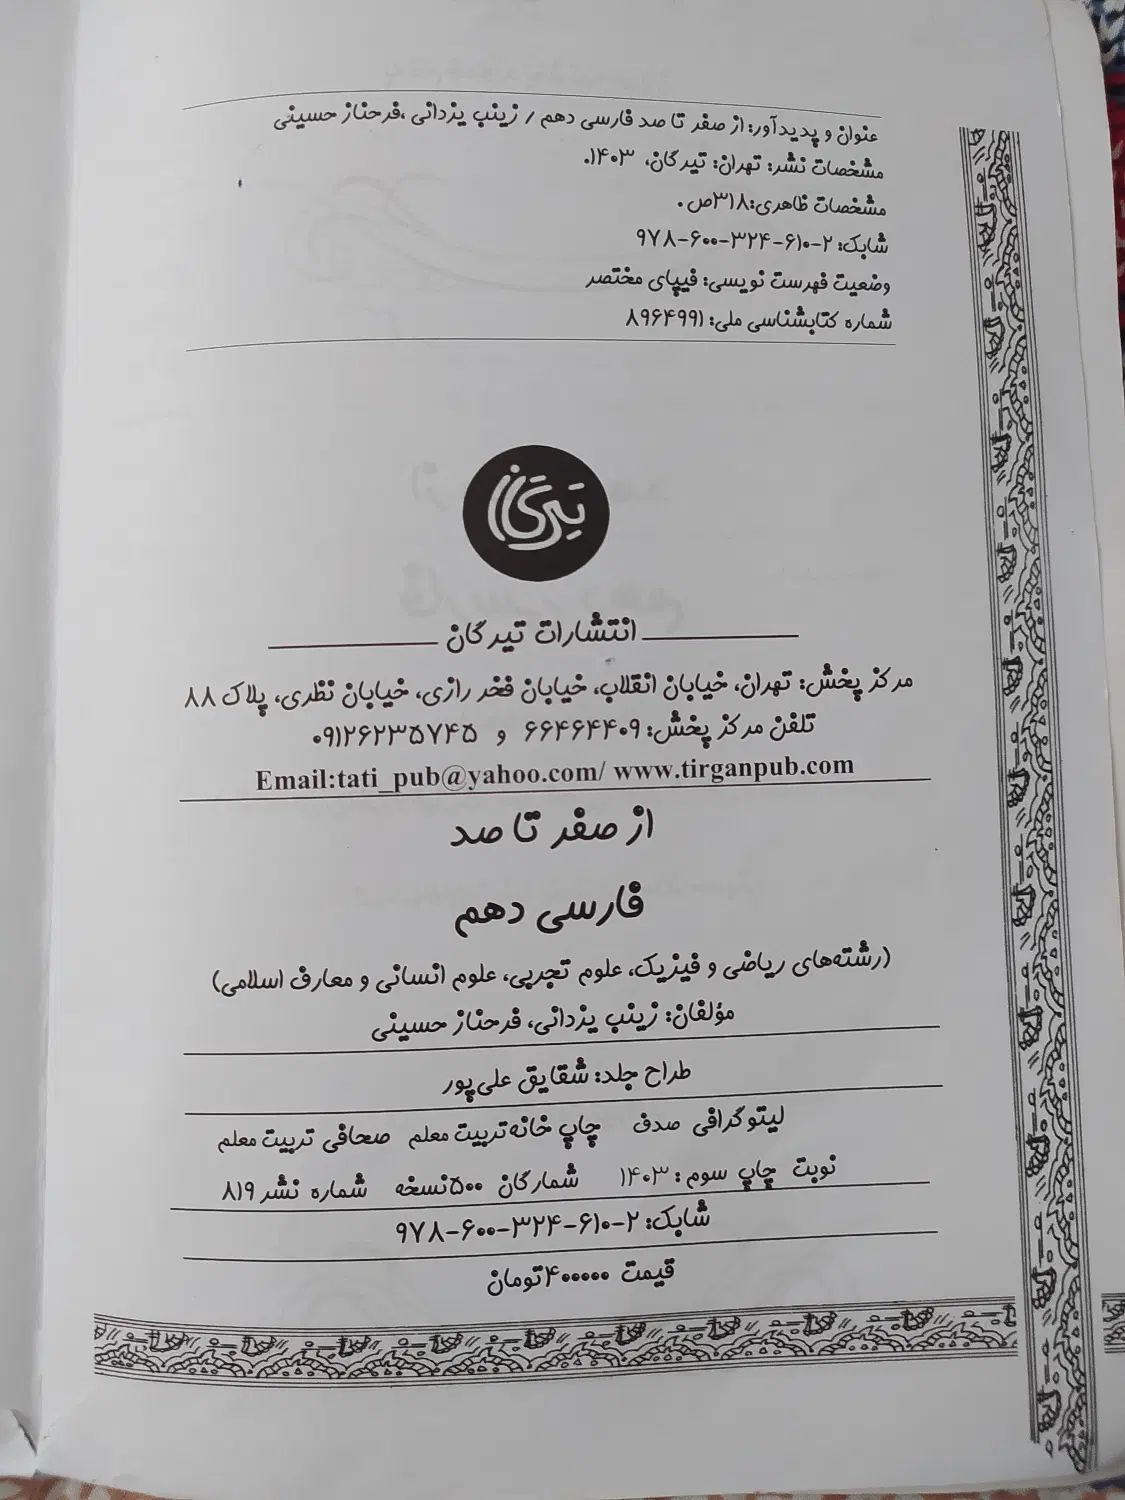 عنوان و پدیدآور: از صفر تا صد فارسی دهم / زینب یزدانی ،فرحناز حسینی
مشخصات نشر: تهران: تیرگان، ۱۴۰۳.
مشخصات ظاهری:۳۱۸ص .
شابک: ۲-۶۱۰-۳۲۴-۶۰۰-۹۷۸
وضعیت فهرست نویسی: فیپای مختصر
شماره کتابشناسی ملی: ۸۹۶۴۹۹۱
تیرگان
انتشارات تیرگان
مرکز پخش: تهران، خیابان انقلاب، خیابان فخر رازی، خیابان نظری، پلاک ۸۸
تلفن مرکز پخش: ۶۶۴۶۴۴۰۹ و ۰۹۱۲۶۲۳۵۷۴۵
Email:tati_pub@yahoo.com/ www.tirganpub.com
از صفر تا صد
فارسی دهم
(رشته‌های ریاضی و فیزیک، علوم تجربی، علوم انسانی و معارف اسلامی)
مؤلفان: زینب یزدانی، فرحناز حسینی
طراح جلد: شقایق علی‌پور
لیتوگرافی صدف چاپ خانه تربیت معلم صحافی تربیت معلم
نوبت چاپ سوم : ۱۴۰۳ شمارگان ۵۰۰نسخه شماره نشر ۸۱۹
شابک: ۲-۶۱۰-۳۲۴-۶۰۰-۹۷۸
قیمت ۴۰۰۰۰۰تومان